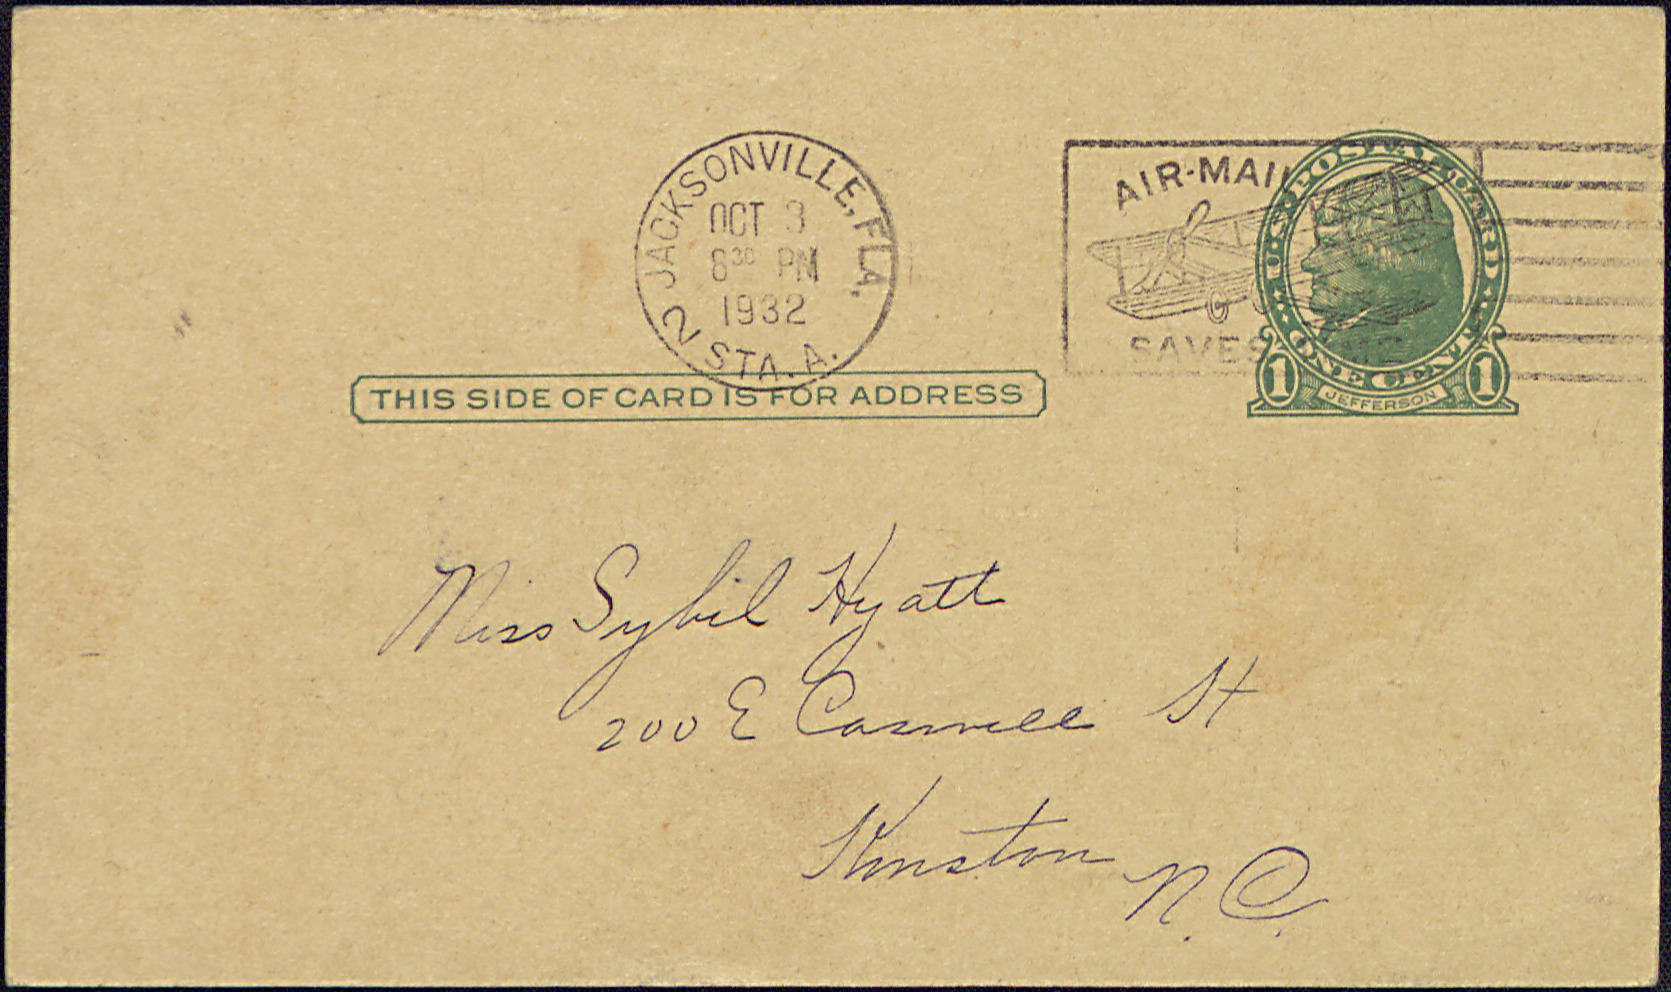 JACKSONVILLE, FLA.
OCT 3
630 PM
1932
2 STA. A.
AIR-MAIL
SAVES TIME
U·S·POSTAL CARD
ONE CENT
1 JEFFERSON 1
THIS SIDE OF CARD IS FOR ADDRESS
Miss Sybil Hyatt
200 E Caswell St
Kinston N. C.